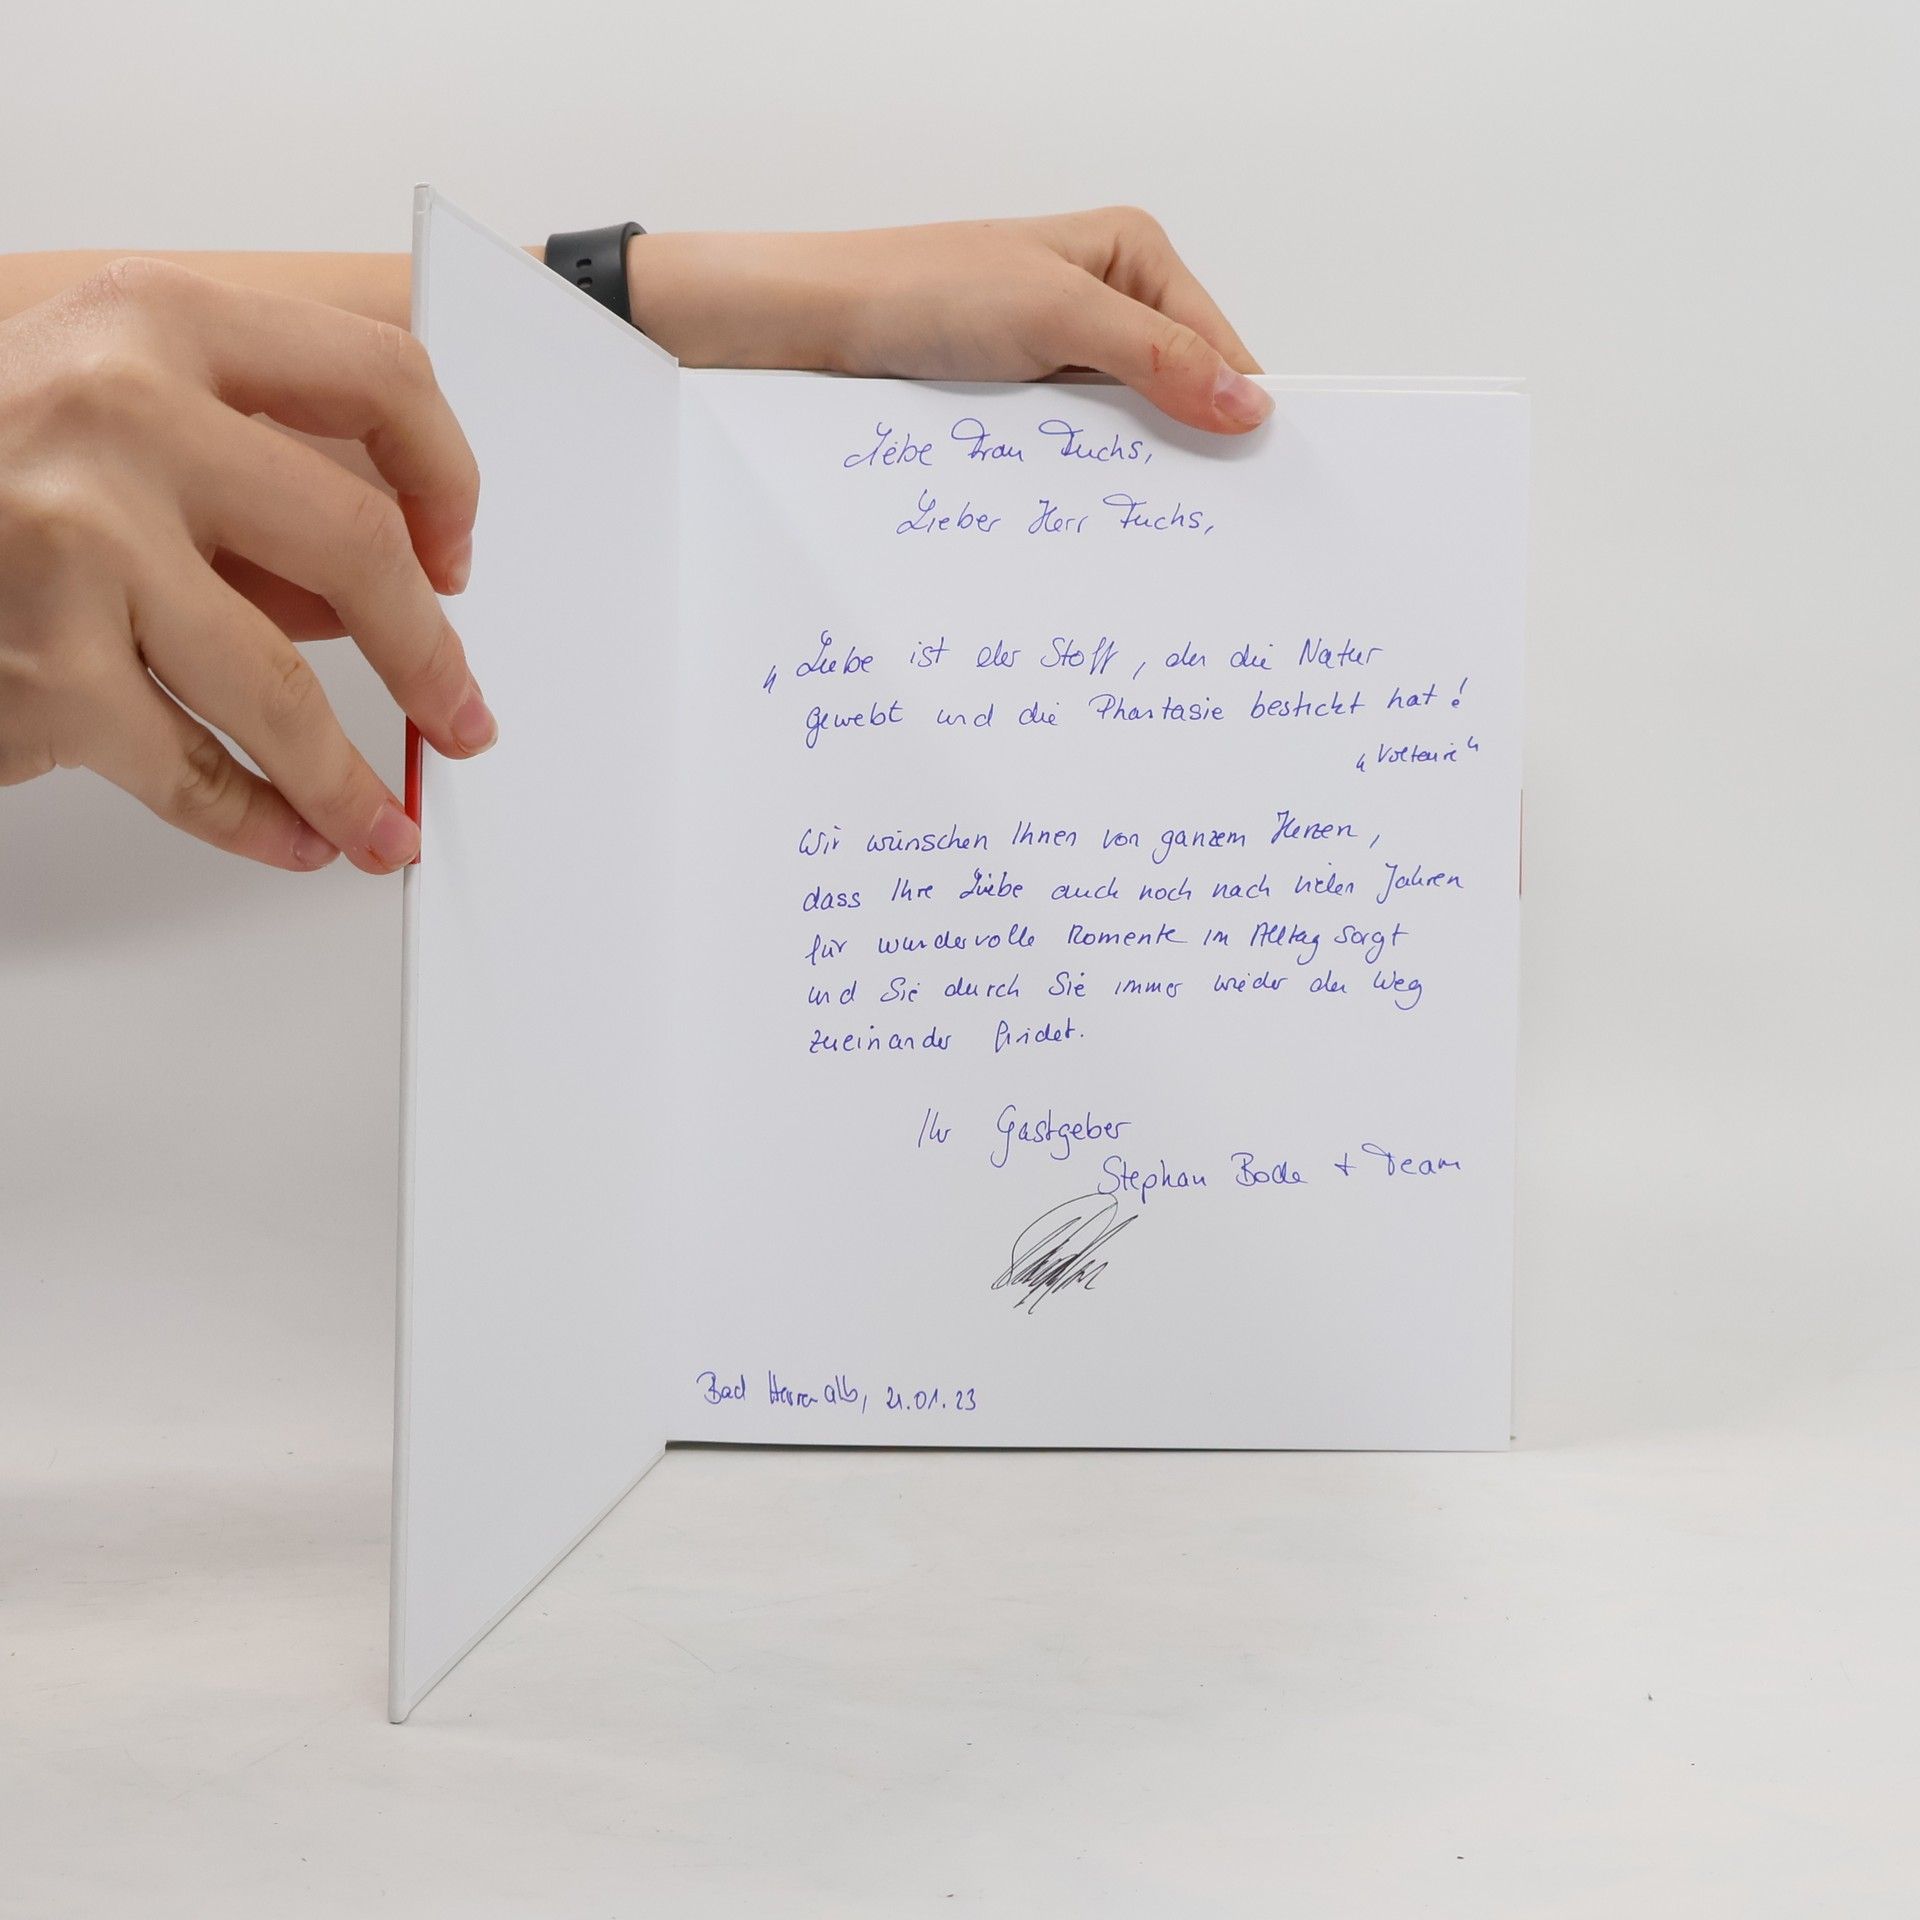 Liebe Frau Fuchs,
Lieber Herr Fuchs,
„Liebe ist der Stoff, den die Natur
gewebt und die Phantasie bestickt hat!
„Voltaire“
Wir wünschen Ihnen von ganzem Herzen,
dass Ihre Liebe auch noch nach vielen Jahren
für wundervolle Momente im Alltag sorgt
und Sie durch Sie immer wieder den Weg
zueinander findet.
Ihr Gastgeber
Stephan Bode + Team
Bad Herrenalb, 21.01.23